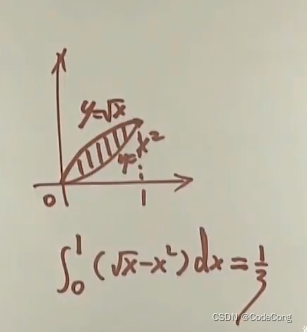 x
y=√x
y=x²
0 1
∫₀¹ (√x-x²) dx = 1/3
CSDN @CodeCong